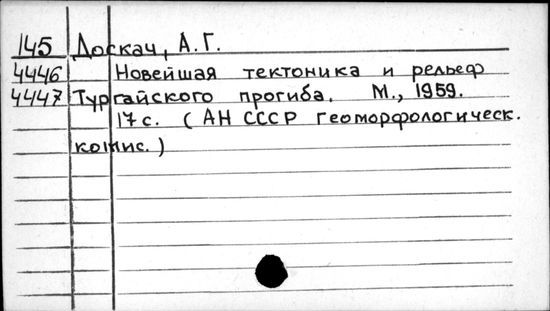 145 Доскач, А.Г.
4446 Новейшая тектоника и рельеф
4447 Тургайского прогиба. М., 1959.
17 с. (АН СССР геоморфологическ.
комис.)